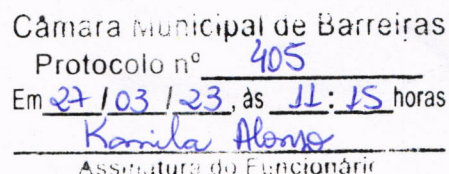 Câmara Municipal de Barreiras
Protocolo nº 405
Em 27/03/23, às 11:15 horas
Kamila Alonso
Assinatura do Funcionário